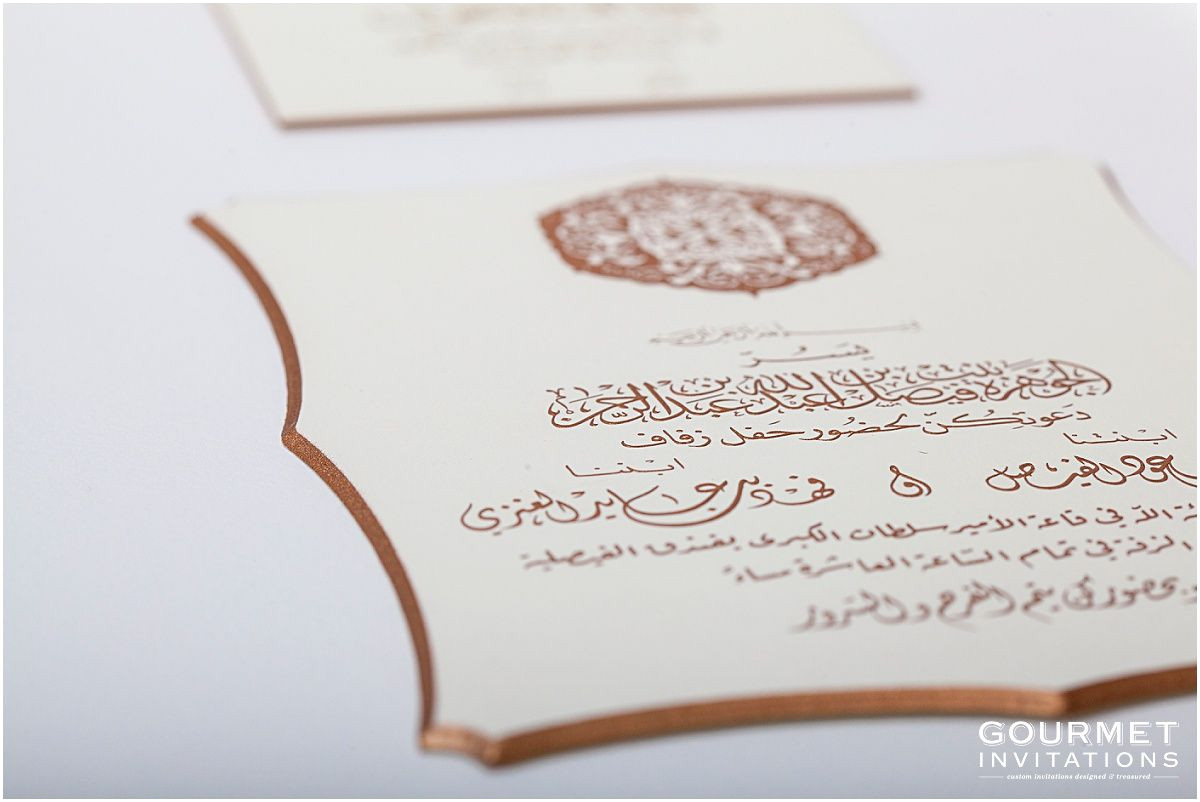 بسم الله الرحمن الرحيم
يَسُرّ
الجوهرة فيصل بن عبدالله بن عبدالرحمن
دعوتكنّ لحضور حفل زفاف
ابنتنا
الفيصل و
ابننا
فهد بن عايد العنزي
في قاعة الأمير سلطان الكبرى بفندق الفيصلية
الزفة في تمام الساعة العاشرة مساءً
وبحضوركن يتم الفرح والسرور
GOURMET
INVITATIONS
custom invitations designed & treasured